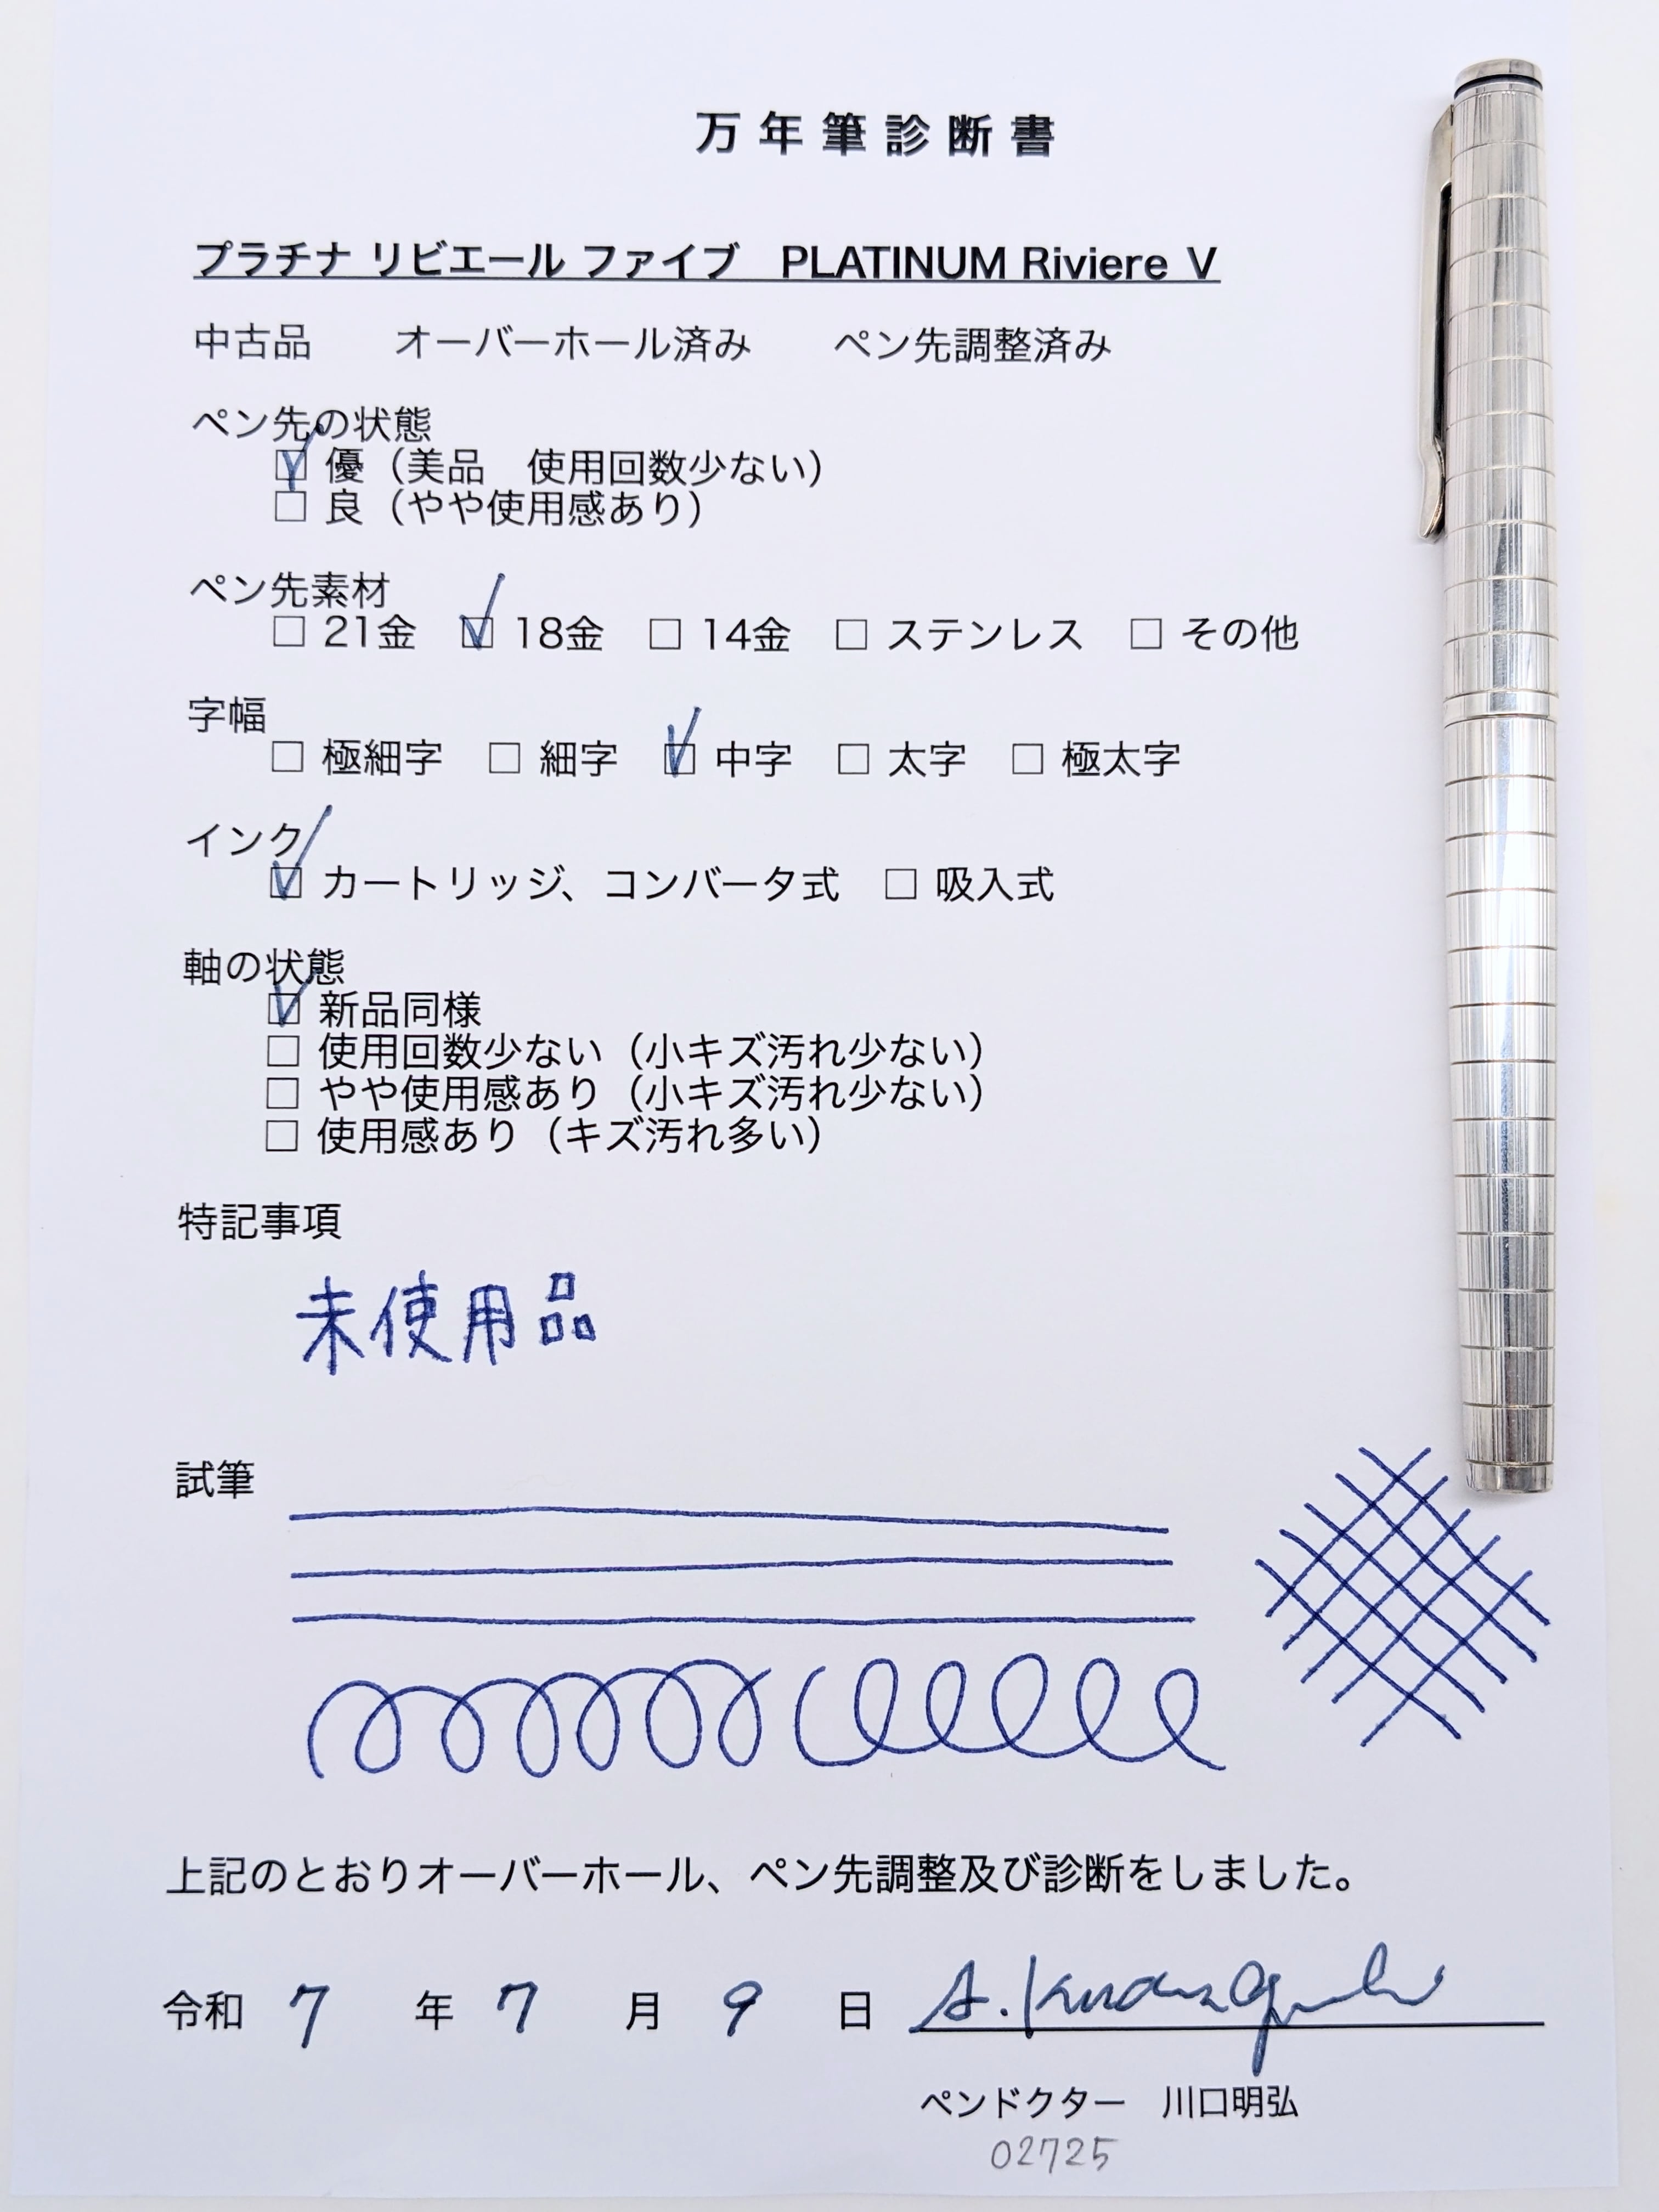 万年筆診断書
プラチナ リビエール ファイブ　PLATINUM Riviere V
中古品　　オーバーホール済み　　ペン先調整済み
ペン先の状態
☑ 優（美品　使用回数少ない）
□ 良（やや使用感あり）
ペン先素材
□ 21金　☑ 18金　□ 14金　□ ステンレス　□ その他
字幅
□ 極細字　□ 細字　☑ 中字　□ 太字　□ 極太字
インク
☑ カートリッジ、コンバータ式　□ 吸入式
軸の状態
☑ 新品同様
□ 使用回数少ない（小キズ汚れ少ない）
□ やや使用感あり（小キズ汚れ少ない）
□ 使用感あり（キズ汚れ多い）
特記事項
未使用品
試筆
上記のとおりオーバーホール、ペン先調整及び診断をしました。
令和 7 年 7 月 9 日
ペンドクター　川口明弘
02725